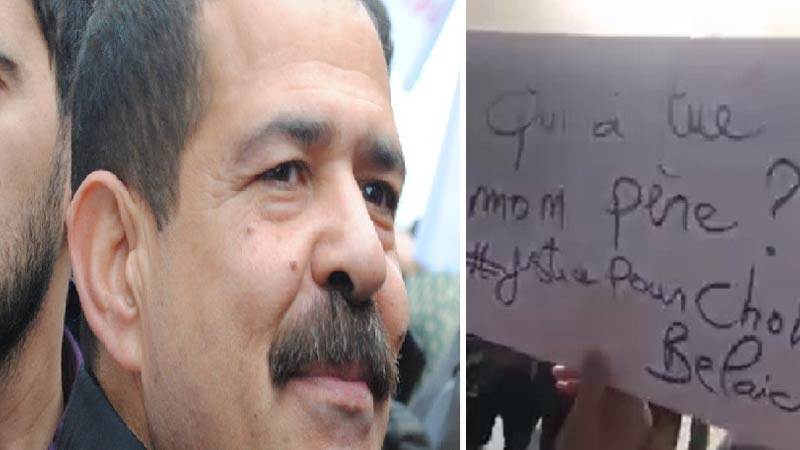 Qui à tué
mon père ?
#justice pour Cho
Belaï